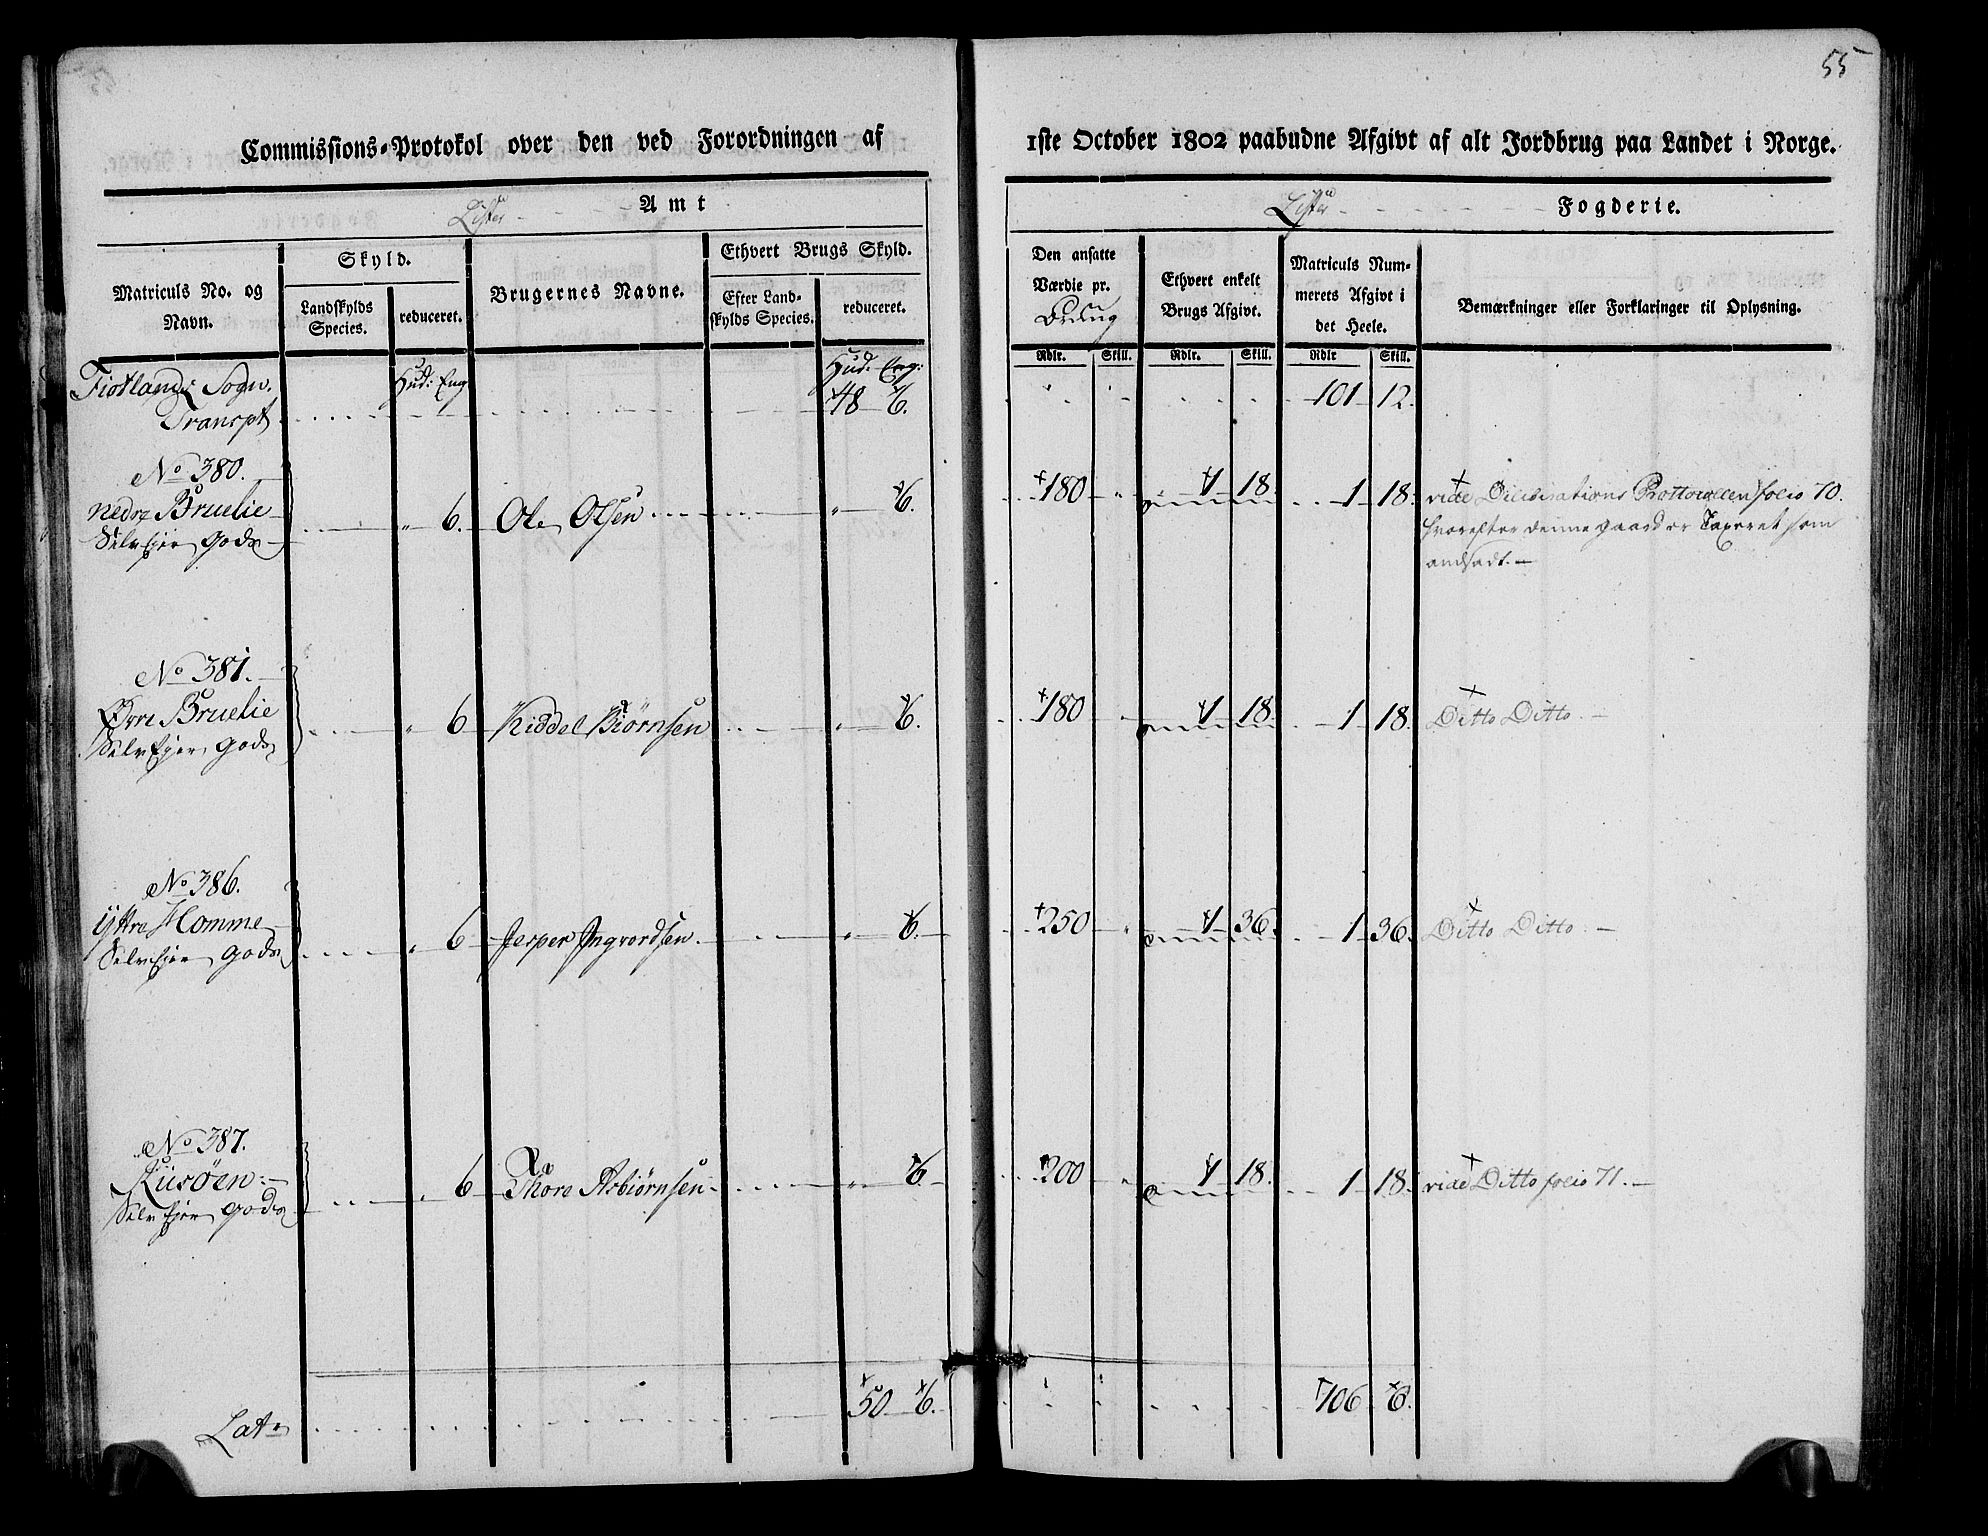 55
Commissions-Protokol over den ved Forordningen af 1ste October 1802 paabudne Afgivt af alt Jordbrug paa Landet i Norge.
Lister Amt
Lister Fogderie.
Matriculs No. og Navn.
Skyld.
Landskylds Species.
reduceret.
Brugernes Navne.
Ethvert Brugs Skyld.
Efter Landskylds Species.
reduceret.
Den ansatte Værdie pr. Brug
Ethvert enkelt Brugs Afgivt.
Matriculs Nummerets Afgivt i det Heele.
Bemærkninger eller Forklaringer til Oplysning.
Rdlr. Skill. Rdlr. Skill. Rdlr Skill.
Fiotlands Sogn. Hud: Eng Hud: Eng:
Transpt 48 6. 101 12.
No 380.
Nedre Bruelie 6. Ole Olsen 6. 180 1 18. 1 18. vide Deliberations Protocollen folio 70.
Selv Ejer Gods hvorefter denne gaard er Taxeret som
andsadt.
No 381.
Øvre Bruelie 6 Kiddel Biørnsen 6. 180 1 18. 1 18. Ditto Ditto.
Selv Ejer Gods
No 386.
Yttre Homme 6 Jesper Ingvordsen. 6. 250 1 36. 1 36. Ditto Ditto.
Selv Ejer Gods
No 387.
Kusöen. 6 Thore Asbiørnsen 6. 200 1 18. 1 18. vide Ditto folio 71.
Selv Ejer Gods
Lat. 50 6. 106 6.